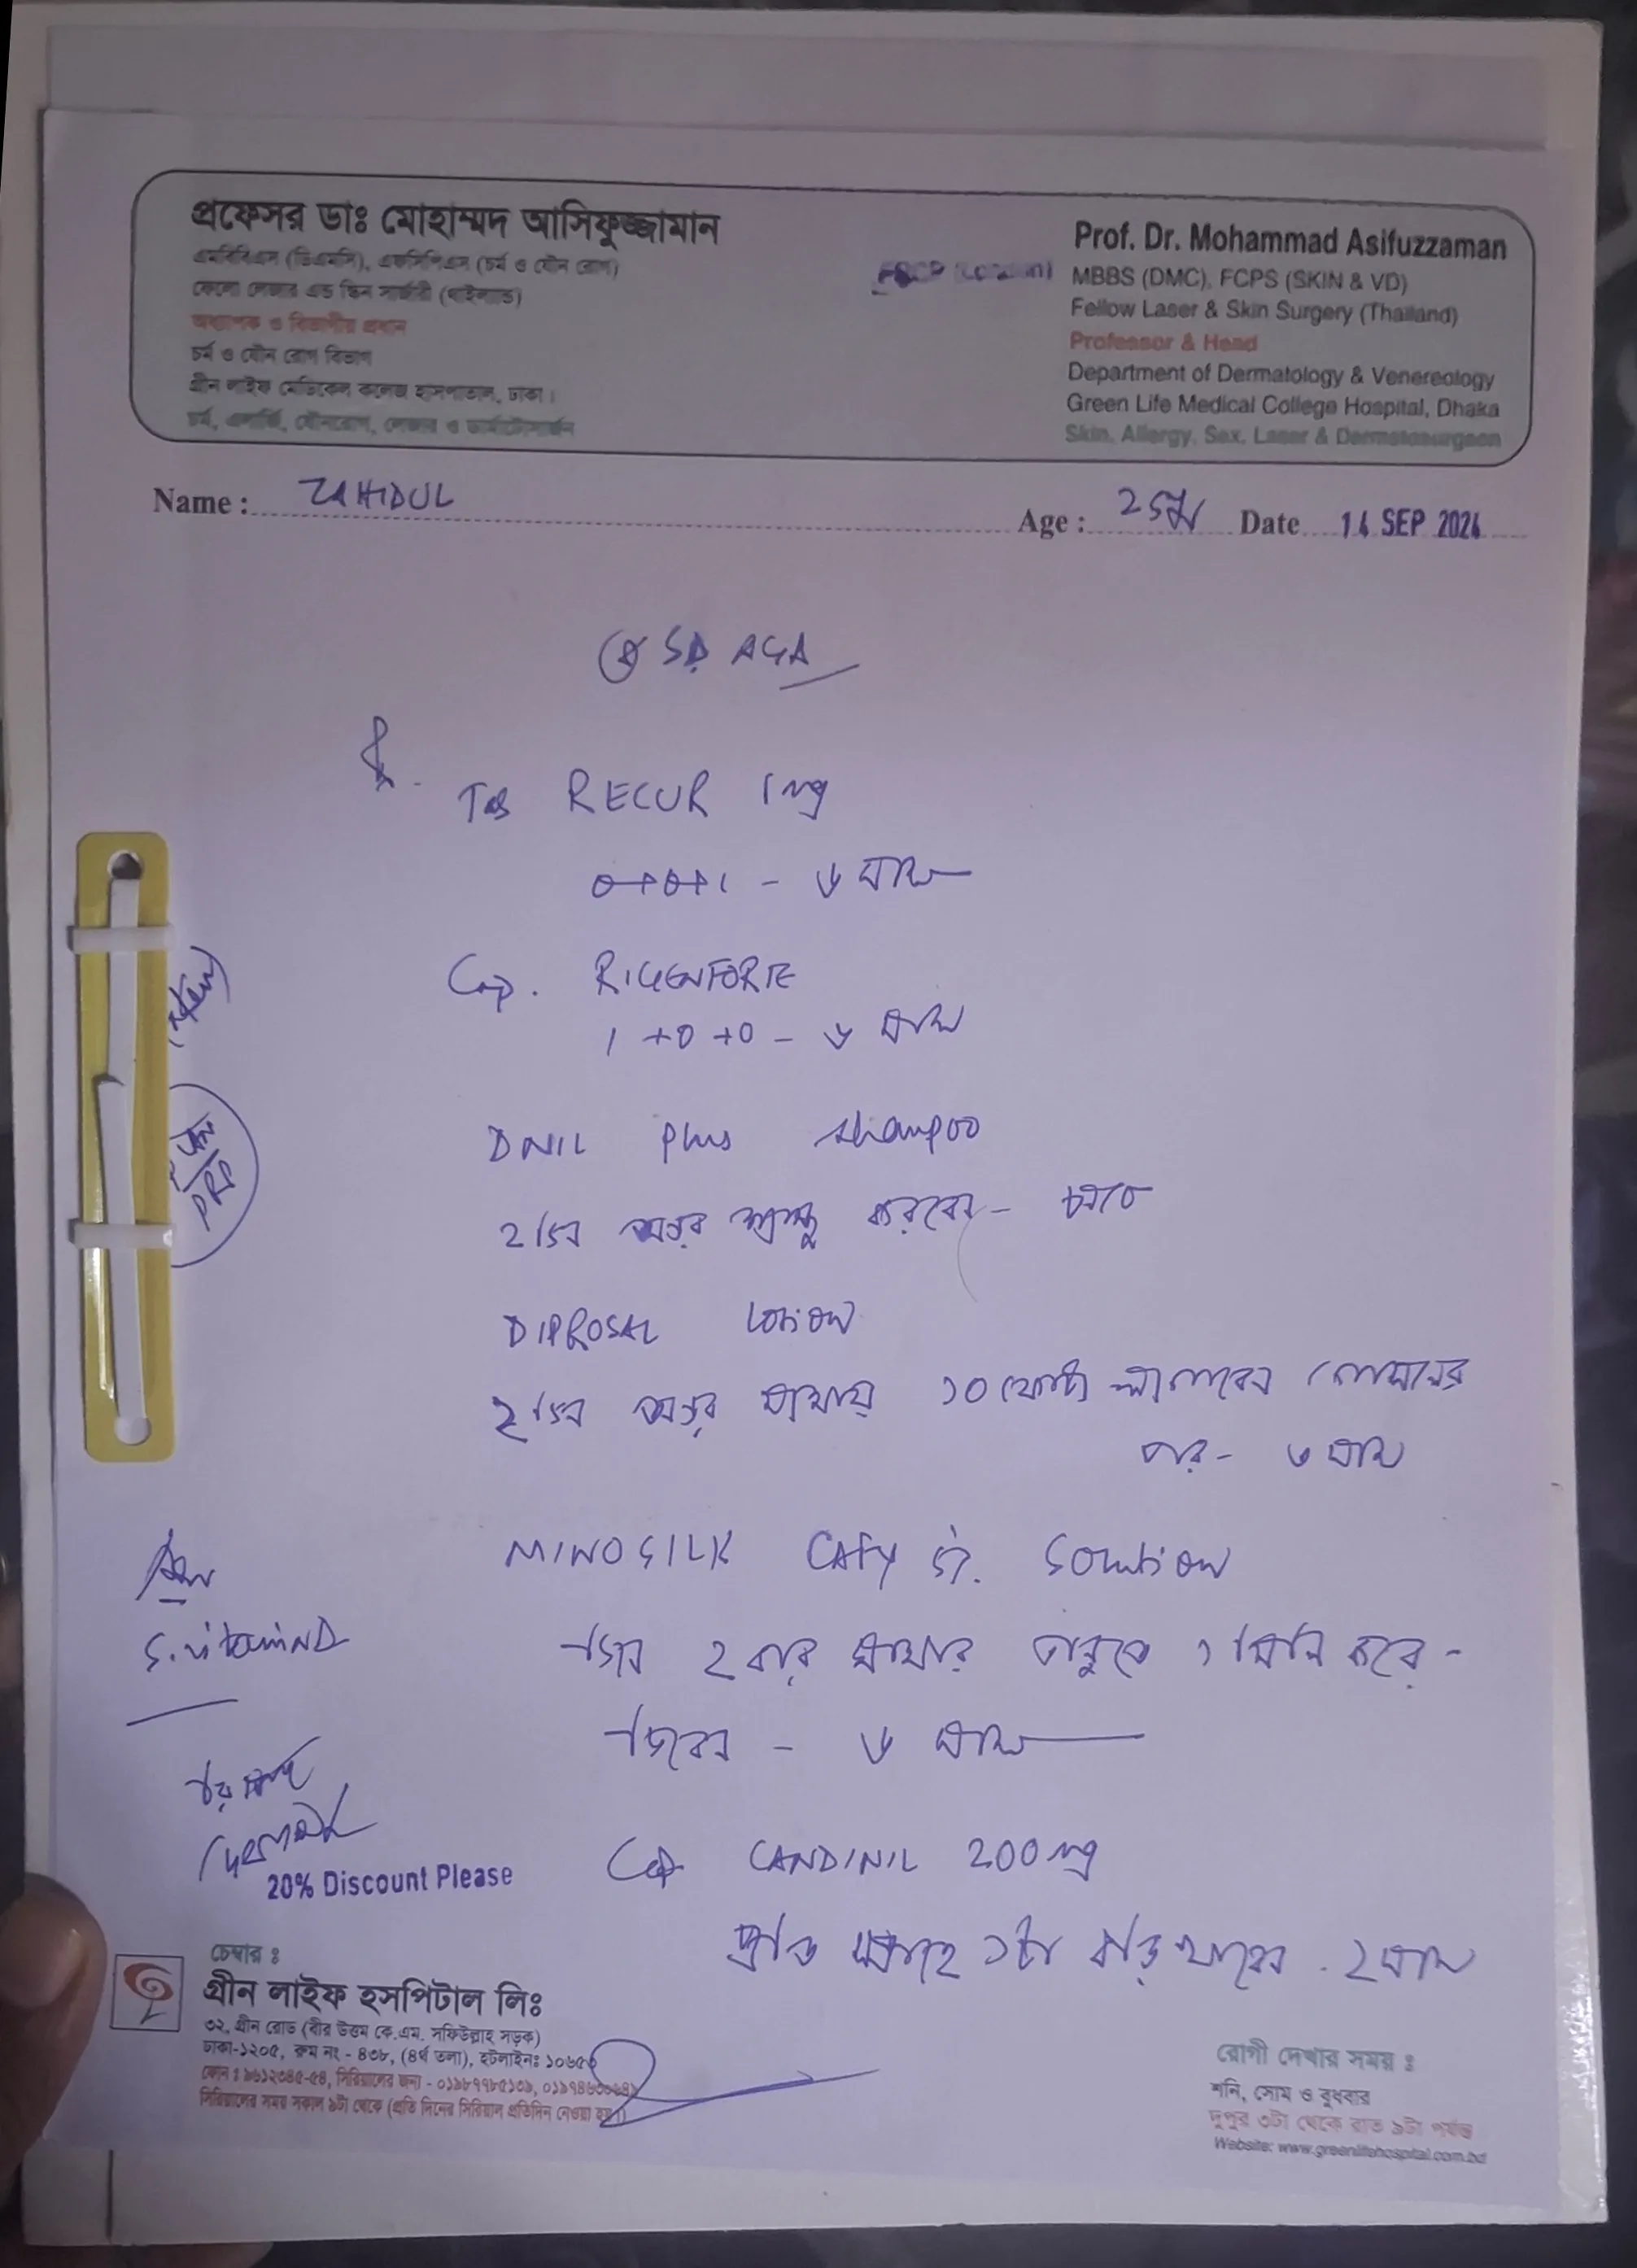 প্রফেসর ডাঃ মোহাম্মদ আসিফুজ্জামান
এমবিবিএস (ডিএমসি), এফসিপিএস (চর্ম ও যৌন রোগ)
ফেলো লেজার এন্ড স্কিন সার্জারী (থাইল্যান্ড)
অধ্যাপক ও বিভাগীয় প্রধান
চর্ম ও যৌন রোগ বিভাগ
গ্রীন লাইফ মেডিকেল কলেজ হাসপাতাল, ঢাকা।
চর্ম, এলার্জি, যৌনরোগ, লেজার ও ডার্মাটোসার্জন
Prof. Dr. Mohammad Asifuzzaman
MBBS (DMC), FCPS (SKIN & VD)
Fellow Laser & Skin Surgery (Thailand)
Professor & Head
Department of Dermatology & Venereology
Green Life Medical College Hospital, Dhaka
Skin, Allergy, Sex, Laser & Dermatosurgeon
Name : ZAHIDUL Age : 25 Date 14 SEP 2024
SD AGA
Tab RECUR 1mg
0+0+1 - ৬ মাস
Cap. RIGENFORTE
1+0+0 - ৬ মাস
DNIL Plus shampoo
২ দিন অন্তর শ্যাম্পু করবেন - চলবে
DIPROSAL Lotion
২ দিন অন্তর মাথায় ১০ ফোটা লাগাবেন গোসলের
পর - ৩ মাস
MINOSILK CAFY 5%. Solution
দিনে ২ বার মাথার তালুতে ১ মিলি করে -
দিবেন - ৬ মাস
Cap CANDINIL 200mg
প্রতি সপ্তাহে ১টা বড়ি খাবেন - ২ মাস
PRP
S. vitamin D
20% Discount Please
চেম্বার ঃ
গ্রীন লাইফ হসপিটাল লিঃ
৩২, গ্রীন রোড (বীর উত্তম কে.এম. সফিউল্লাহ সড়ক)
ঢাকা-১২০৫, রুম নং - ৪৩৮, (৪র্থ তলা), হটলাইনঃ
সিরিয়ালের সময় সকাল ৯টা থেকে (প্রতি দিনের সিরিয়াল প্রতিদিন নেওয়া হয়।)
রোগী দেখার সময় ঃ
শনি, সোম ও বুধবার
দুপুর ৩টা থেকে রাত ৯টা পর্যন্ত
Website: www.greenlifehospital.com.bd